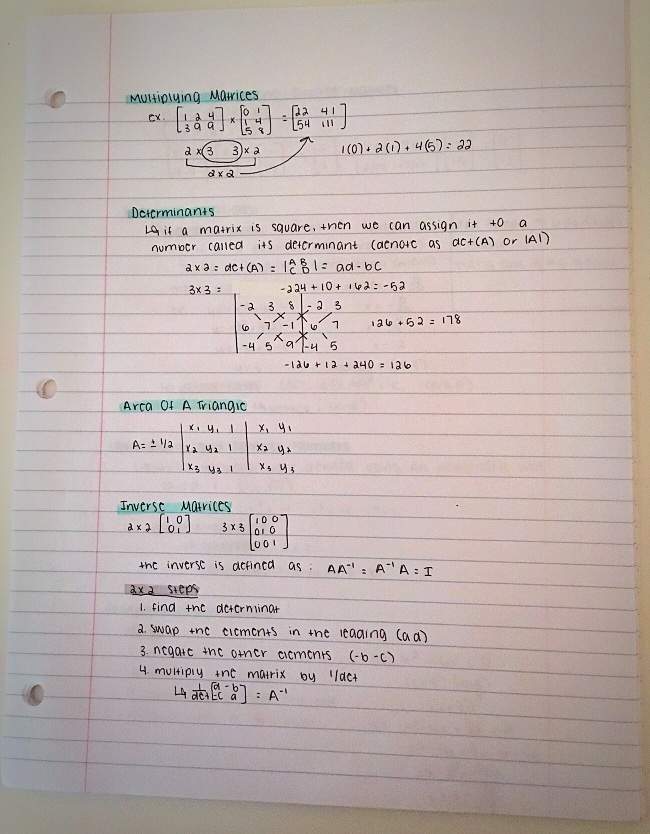 Multiplying Matrices
ex. [1 2 4 / 3 9 9] × [0 1 / 1 4 / 5 8] = [22 41 / 54 111]
2 × 3 3 × 2 1(0) + 2(1) + 4(5) = 22
2 × 2
Determinants
↳ if a matrix is square, then we can assign it to a
number called its determinant (denote as det(A) or |A|)
2×2 = det(A) = |A B / C D| = ad - bc
3×3 = -224 + 10 + 162 = -52
-2 3 8 -2 3
6 7 -1 6 7 126 + 52 = 178
-4 5 9 -4 5
-126 + 12 + 240 = 126
Area Of A Triangle
x₁ y₁ 1 x₁ y₁
A = ± 1/2 x₂ y₂ 1 x₂ y₂
x₃ y₃ 1 x₃ y₃
Inverse Matrices
2×2 [1 0 / 0 1] 3×3 [1 0 0 / 0 1 0 / 0 0 1]
the inverse is defined as: AA⁻¹ = A⁻¹A = I
2×2 steps
1. find the determinat
2. swap the elements in the leading (a,d)
3. negate the other elements (-b -c)
4. multiply the matrix by 1/det
↳ 1/det [d -b / -c a] = A⁻¹